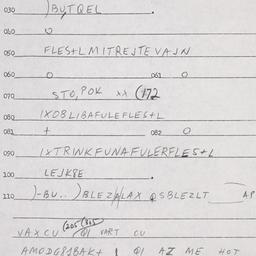 030 )BUTQEL
040 O
050 FLES+LMITREJTEVAJN
060 O 061 O
070 STO, POK ** (172
080 1XOBLIBAFULEFLES+L
081 + 082 O
090 1XTRINKFUNAFULERFLES+L
100 LEJK8E
110 )-BU.. )BLEZ LAX QSBLEZLT AP
VAXCU (205 QI VART CU
QI AZ ME HOT